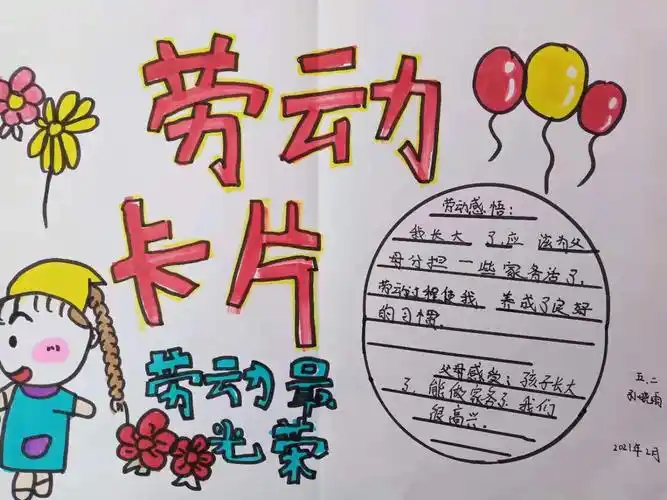 劳动
卡片
劳动最
光荣
劳动感悟：
我长大了,应该为父
母分担一些家务活了,
劳动过程使我 养成了良好
的习惯.
父母感觉：孩子长大
了,能做家务了,我们
很高兴.
五.二
2021年2月